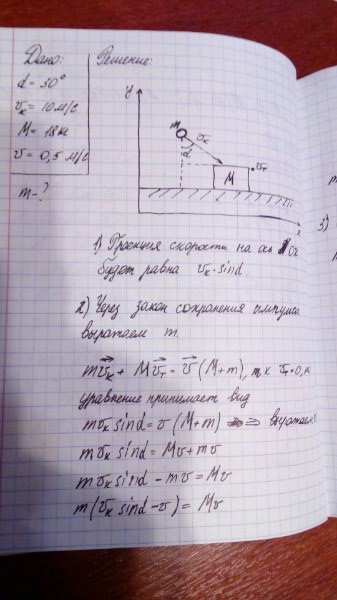 Дано:
α = 30°
υк = 10 м/с
M = 18 кг
υ = 0,5 м/с
m - ?
Решение:
y
m
υк
α
υт
M
x
1) Проекция скорости на ось Ox
будет равна υк · sinα
2) Через закон сохранения импульса
выражаем m.
mυк + Mυт = υ (M+m), т.к υт = 0, то
уравнение принимает вид
mυк sinα = υ (M+m) => выражаем
mυк sinα = Mυ + mυ
mυк sinα - mυ = Mυ
m(υк sinα - υ) = Mυ
3)